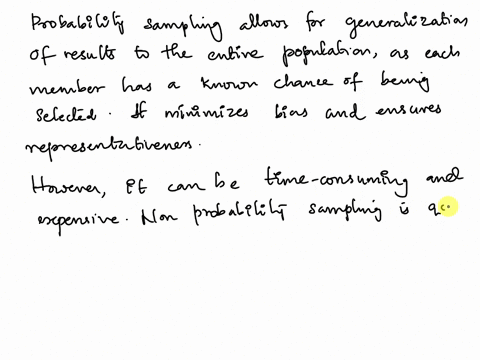 Probability sampling allows for generalization
of results to the entire population, as each
member has a known chance of being
selected. It minimizes bias and ensures
representativeness.
However, it can be time-consuming and
expensive. Non probability sampling is